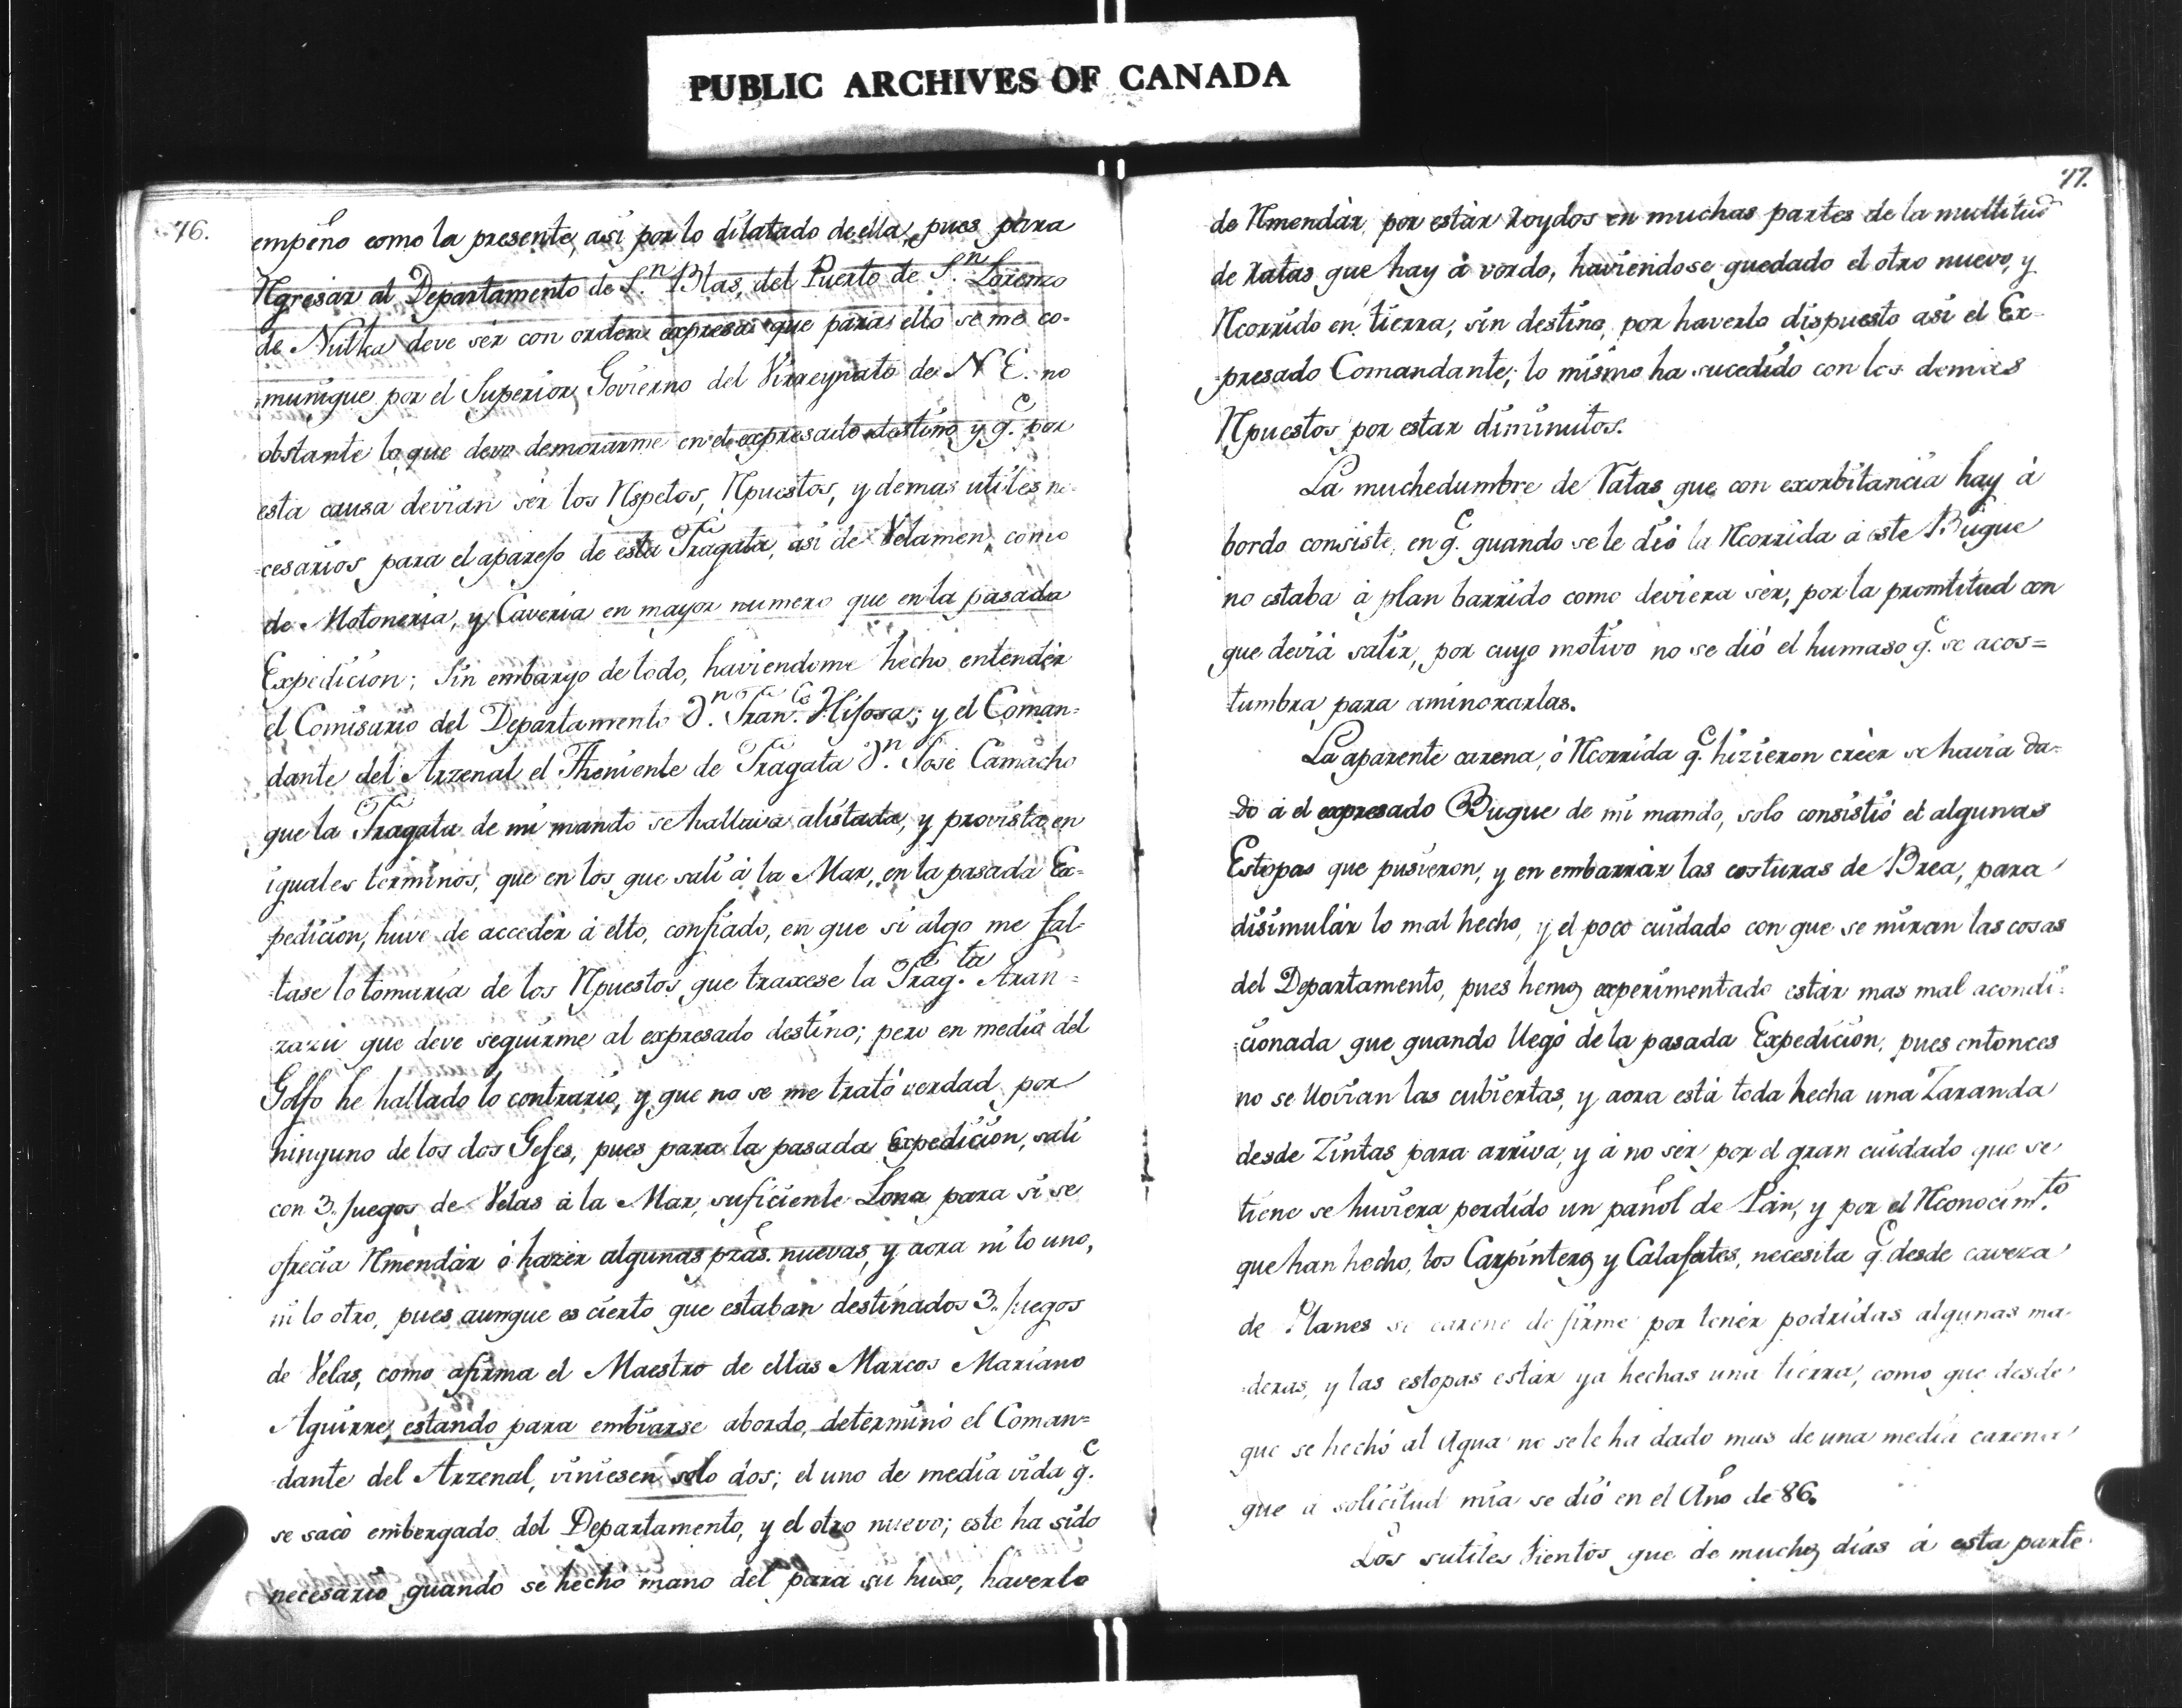 PUBLIC ARCHIVES OF CANADA
76.
empeño como la presente, asi por lo dilatado de ella, pues para
Rgresar al Departamento de S.n Blas, del Puerto de S.n Lorenzo
de Nutka deve sér con orden expresa que para ello se me co-
munique por el Superior Govierno del Virreynato de N E. no
obstante lo que devo demorarme en el expresado destino y q.e por
esta causa devian sér los Rspetos, Rpuestos, y demas utiles ne-
cesarios para el aparejo de esta Fragata, asi de Velamen, como
de Motoneria, y Caveria en mayor numero que en la pasada
Expedicion; Sin embargo de todo, haviendome hecho entendér
el Comisario del Departamento D.n Fran.co Hijosa; y el Coman=
dante del Arzenal el Theniente de Fragata D.n José Camacho
que la Fragata de mi mando se hallava alistada, y provista en
iguales terminos, que en los que salí á la Mar, en la pasada Ex=
pedicion, huve de accedér á ello, confiado, en que si algo me fal-
tase lo tomaria de los Rpuestos que traxese la Frag.ta Aran=
zazú que deve seguirme al expresado destino; pero en media del
Golfo he hallado lo contrario, y que no se me trató verdad por
ninguno de los dos Gefes, pues para la pasada Expedicion, salí
con 3. Juegos de Velas á la Mar, suficiente Lona para si se
ofrecia Rmendár ó hazér algunas pzas. nuevas, y aora ni lo uno,
ni lo otro, pues aunque es cierto que estaban destinados 3. Juegos
de Velas, como afirma el Maestro de ellas Marcos Mariano
Aguirre, estando para embiarse abordo, determinó el Coman=
dante del Arzenal, viniesen solo dos; el uno de media vida q.e
se sacó embergado del Departamento, y el otro nuevo; este ha sido
necesario quando se hechó mano del para su huso, haverlo
77.
de Rmendár por estár roydos en muchas partes de la multitud
de ratas que hay á vordo, haviendose quedado el otro nuevo, y
Rcorrido en tierra, sin destino, por haverlo dispuesto asi el Ex-
presado Comandante; lo mismo ha sucedido con los demas
Rpuestos por estar diminutos.
La muchedumbre de Ratas que con exorbitancia hay á
bordo consiste, en q.e quando se le dió la Rcorrida á este Buque
no estaba á plan barrido como deviera sér, por la promtitud con
que deviá salír, por cuyo motivo no se dió el humaso q.e se acos=
tumbra para aminorarlas.
La aparente carena, ó Rcorrida q.e hizieron créer se havia da-
do á el expresado Buque de mi mando, solo consistió el algunas
Estopas que pusieron, y en embarrár las costuras de Brea, para
disimulár lo mal hecho, y el poco cuidado con que se miran las cosas
del Departamento, pues hemos experimentado estár mas mal acondi-
cionada que quando llegó de la pasada Expedicion, pues entonces
no se llovian las cubiertas, y aora está toda hecha una Zaranda
desde Zintas para arriva, y á no sér por el gran cuidado que se
tiene se huviera perdido un pañol de Pán, y por el Rconocim.to
que han hecho, los Carpinteros y Calafates, necesita q.e desde caveza
de Planes se carene de firme por tenér podridas algunas ma-
deras, y las estopas estár ya hechas una tierra, como que desde
que se hechó al Agua no se le ha dado mas de una media carena
que á solicitud mia se dió en el Año de 86.
Los sutiles Vientos que de muchos dias á esta parte